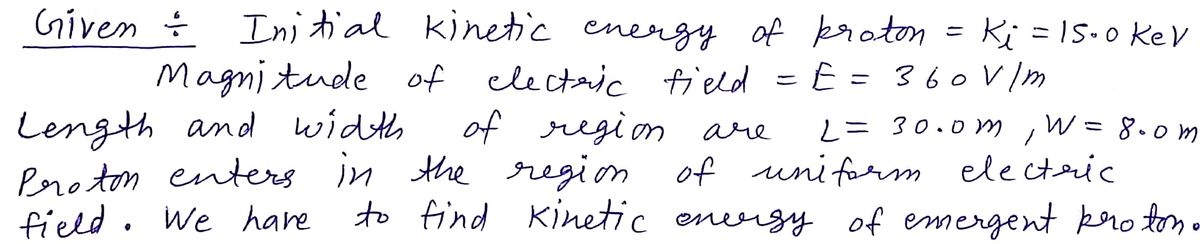 Given ÷ Initial kinetic energy of proton = Ki = 15.0 KeV
Magnitude of electric field = E = 360 V/m
Length and width of region are L = 30.0 m , W = 8.0 m
Proton enters in the region of uniform electric
field. We have to find Kinetic energy of emergent proton.